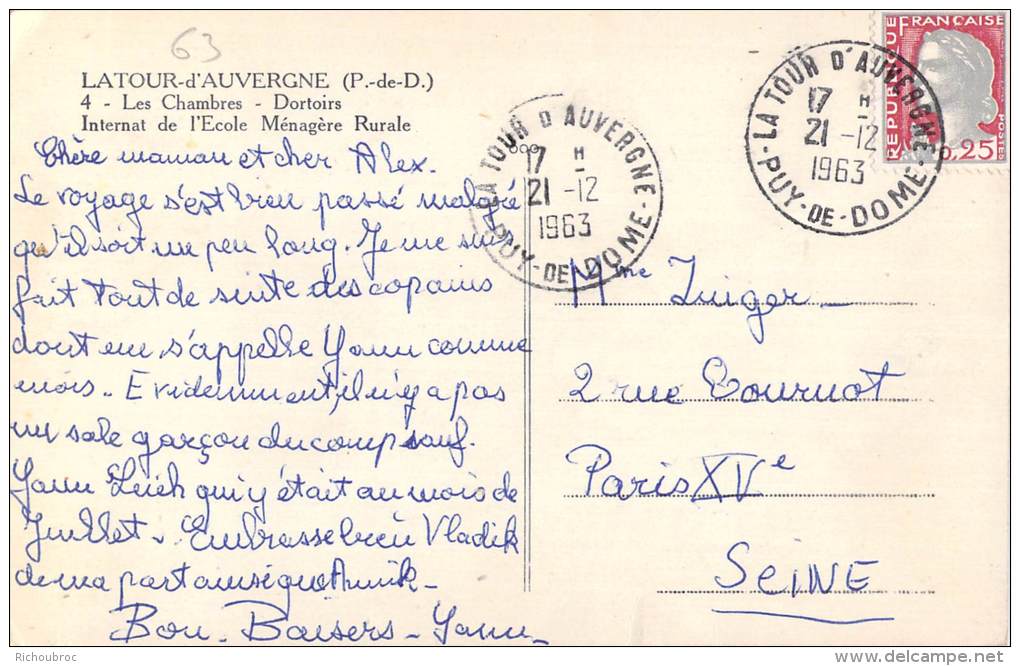 63
LATOUR-d'AUVERGNE (P.-de-D.)
4 - Les Chambres - Dortoirs
Internat de l'Ecole Ménagère Rurale
Chère maman et cher Alex.
Le voyage s'est bien passé malgré
qu'il soit un peu long. Je me suis
fait tout de suite des copains
dont un s'appelle Yann comme
mois. Evidemment, il n'y a pas
un sale garçon du camp sauf.
Yann qui y était au mois de
Juillet. Embrasse bien Vladik
de ma part ainsi que Annik-
Bon. Baisers- Yann-
LA TOUR D'AUVERGNE
17 H
21 -12
1963
PUY-DE-DOME
LA TOUR D'AUVERGNE
17 H
21 -12
1963
PUY-DE-DOME
REPUBLIQUE FRANÇAISE
POSTES
0,25
Mme
2 rue Tournot
Paris XVe
SEINE
Richoubroc
www.delcampe.net